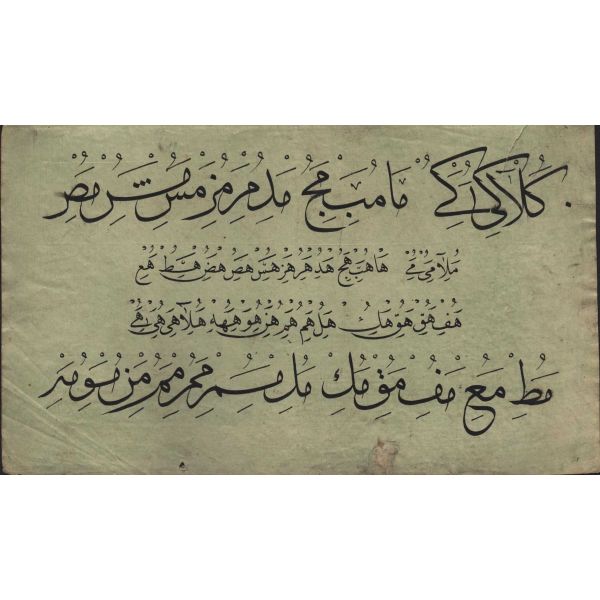 كلا كى كے ما مب مج مد مر مز مس مش مص
ملا مى مے ها هب هج هد هر هز هس هص هض هط هع
هف هق هق هك هل هم هم هن هو همه هلا هى هے
مط مع مف مق مك مل مسم محم مم من مو مه